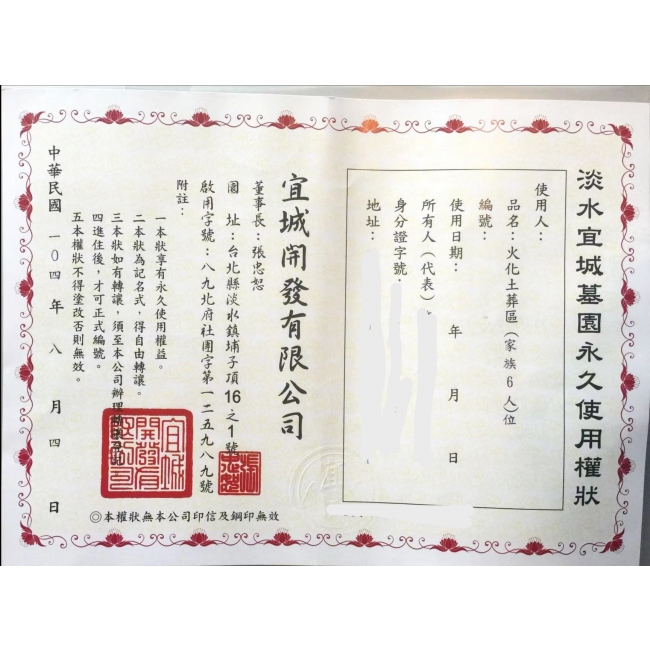 淡水宜城墓園永久使用權狀
使用人：
品名：火化土葬區（家族6人）位
編號：
使用日期：　年　月　日
所有人（代表）、
身分證字號：
地址：
宜城開發有限公司
董事長：張忠恕
園　址：台北縣淡水鎮埔子頂16之1號
啟用字號：八九北府社團字第一二五九八九號
附註：
一本狀享有永久使用權益。
二本狀為記名式，得自由轉讓。
三本狀如有轉讓，須至本公司辦理
四進住後，才可正式編號。
五本權狀不得塗改否則無效。
中華民國一０四年八月四日
◎本權狀無本公司印信及鋼印無效